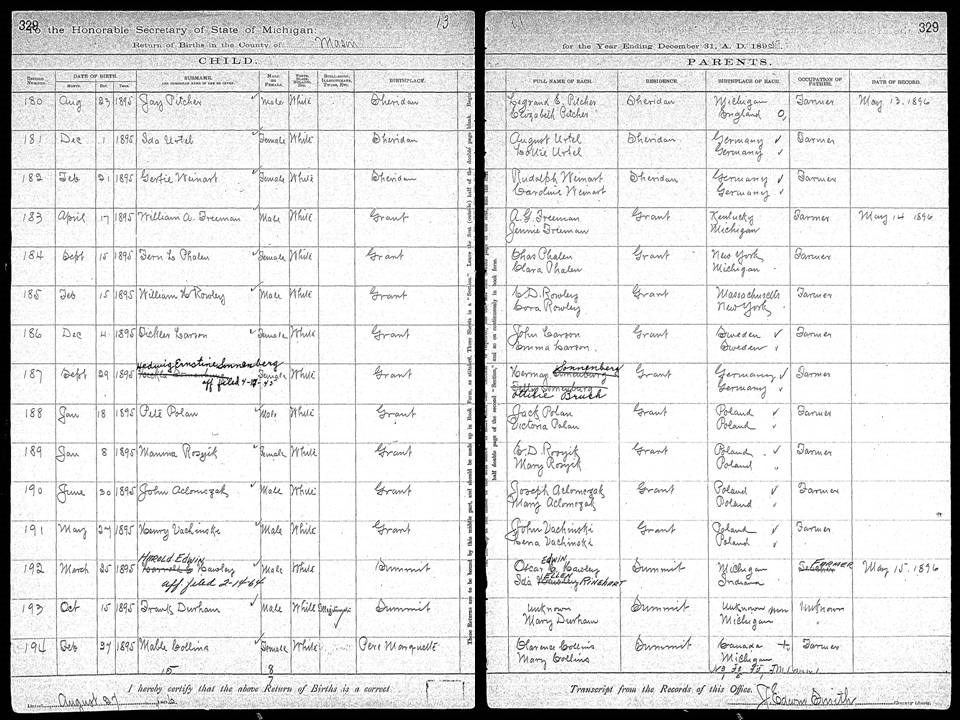 329
To the Honorable Secretary of State of Michigan:
13
Return of Births in the County of Mason
CHILD.
RECORD NUMBER. DATE OF BIRTH. MONTH. DAY. YEAR. SURNAME, AND CHRISTIAN NAME (IF ANY BE GIVEN). MALE OR FEMALE. WHITE, BLACK, MULATTO, ETC. STILLBORN, ILLEGITIMATE, TWINS, ETC. BIRTHPLACE.
180 Aug 23 1895 Jay Pitcher Male White Sheridan
181 Dec 1 1895 Ida Urtel Female White Sheridan
182 Feb 21 1895 Gertie Weinart Female White Sheridan
183 April 17 1895 William A. Freeman Male White Grant
184 Sept 15 1895 Fern L Phalen Female White Grant
185 Feb 15 1895 William H Rowley Male White Grant
186 Dec 4 1895 Larson Female White Grant
Hedwig Ernstine Sonnenberg
187 Sept 29 1895 Female White Grant
aff filed
188 Jan 18 1895 Pete Polan Male White Grant
189 Jan 8 1895 Mamma Rozyik Female White Grant
190 June 30 1895 John Aclomczak Male White Grant
191 May 27 1895 Henry Vachinski Male White Grant
HAROLD EDWIN
192 March 25 1895 Hawley Male White Summit
aff filed 2-14-64
193 Oct 15 1895 Frank Durham Male White Illegitimate Summit
194 Feb 27 1895 Mable Collins Female White Pere Marquette
15 8
7
I hereby certify that the above Return of Births is a correct
Dated August 27
329
for the Year Ending December 31, A. D. 1895
PARENTS.
FULL NAME OF EACH. RESIDENCE. BIRTHPLACE OF EACH. OCCUPATION OF FATHER. DATE OF RECORD.
Legrand E. Pitcher Sheridan Michigan Farmer May 13. 1896
Elizabeth Pitcher England
August Urtel Sheridan Germany Farmer
Lottie Urtel Germany
Rudolph Weinart Sheridan Germany Farmer
Caroline Weinart Germany
A. G. Freeman Grant Kentucky Farmer May 14 1896
Jennie Freeman Michigan
Chas Phalen Grant New York Farmer
Clara Phalen Michigan
C. D. Rowley Grant Massachusetts Farmer
Cora Rowley New York
John Larson Grant Sweden Farmer
Emma Larson Sweden
Sonnenberg
Herman Grant Germany Farmer
Germany
Ottilie Bruch
Jack Polan Grant Poland Farmer
Victoria Polan Poland
C. D. Rozyik Grant Poland Farmer
Mary Rozyik Poland
Joseph Aclomczak Grant Poland Farmer
Mary Aclomczak Poland
John Vachinski Grant Poland Farmer
Lena Vachinski Poland
EDWIN FARMER
Oscar E. Hawley Summit Michigan May 15. 1896
ELLEN
Ida Hawley RINEHART Indiana
Unknown Summit Unknown Unknown
Mary Durham Michigan
Clarence Collins Summit Canada Farmer
Mary Collins Michigan
Transcript from the Records of this Office.
J. Edwin Smith County Clerk.